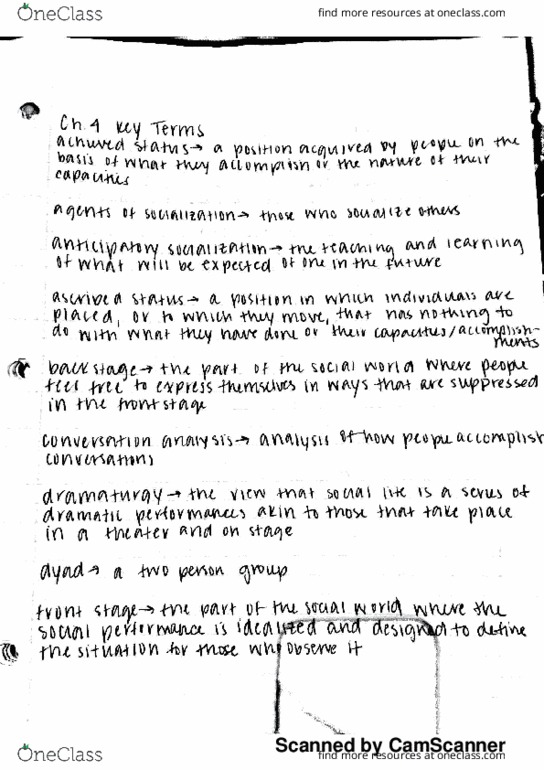 OneClass
find more resources at oneclass.com
Ch. 4 Key Terms
achieved status→ a position acquired by people on the
basis of what they accomplish or the nature of their
capacities
agents of socialization→ those who socialize others
anticipatory socialization→ the teaching and learning
of what will be expected of one in the future
ascribed status→ a position in which individuals are
placed, or to which they move, that has nothing to
do with what they have done or their capacities/accomplish-
ments
back stage→ the part of the social world where people
feel free to express themselves in ways that are suppressed
in the front stage
conversation analysis→ analysis of how people accomplish
conversations
dramaturgy→ the view that social life is a series of
dramatic performances akin to those that take place
in a theater and on stage
dyad→ a two person group
front stage→ the part of the social world where the
social performance is idealized and designed to define
the situation for those who observe it
Scanned by CamScanner
OneClass
find more resources at oneclass.com